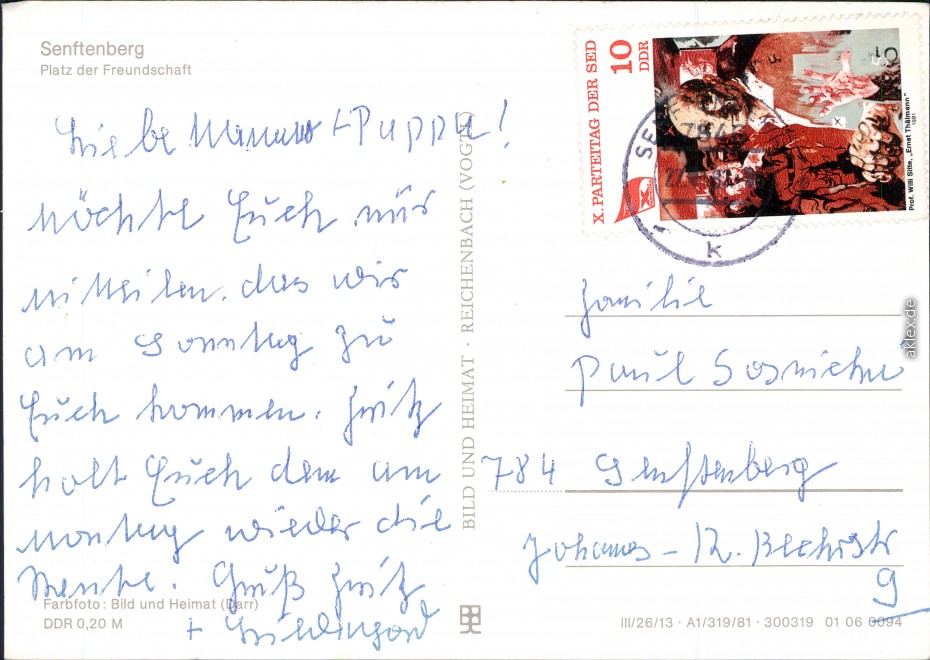 Senftenberg
Platz der Freundschaft
Liebe Mamma + Pappa!
möchte Euch nur
mitteilen, das wir
am Sonntag zu
Euch kommen. Fritz
holt Euch dem am
Montag wieder die
Rente. Gruß Fritz
+ Friedingard
Farbfoto: Bild und Heimat (Darr)
DDR 0,20 M
BILD UND HEIMAT · REICHENBACH (VOGTL
X. PARTEITAG DER SED
10
DDR
Prof. Willi Sitte, „Ernst Thälmann"
1981
k
Familie
Paul
784 Senftenberg
Johannes-R. Becherstr
9
III/26/13 · A1/319/81 · 300319 01 06 0094
aklex.de